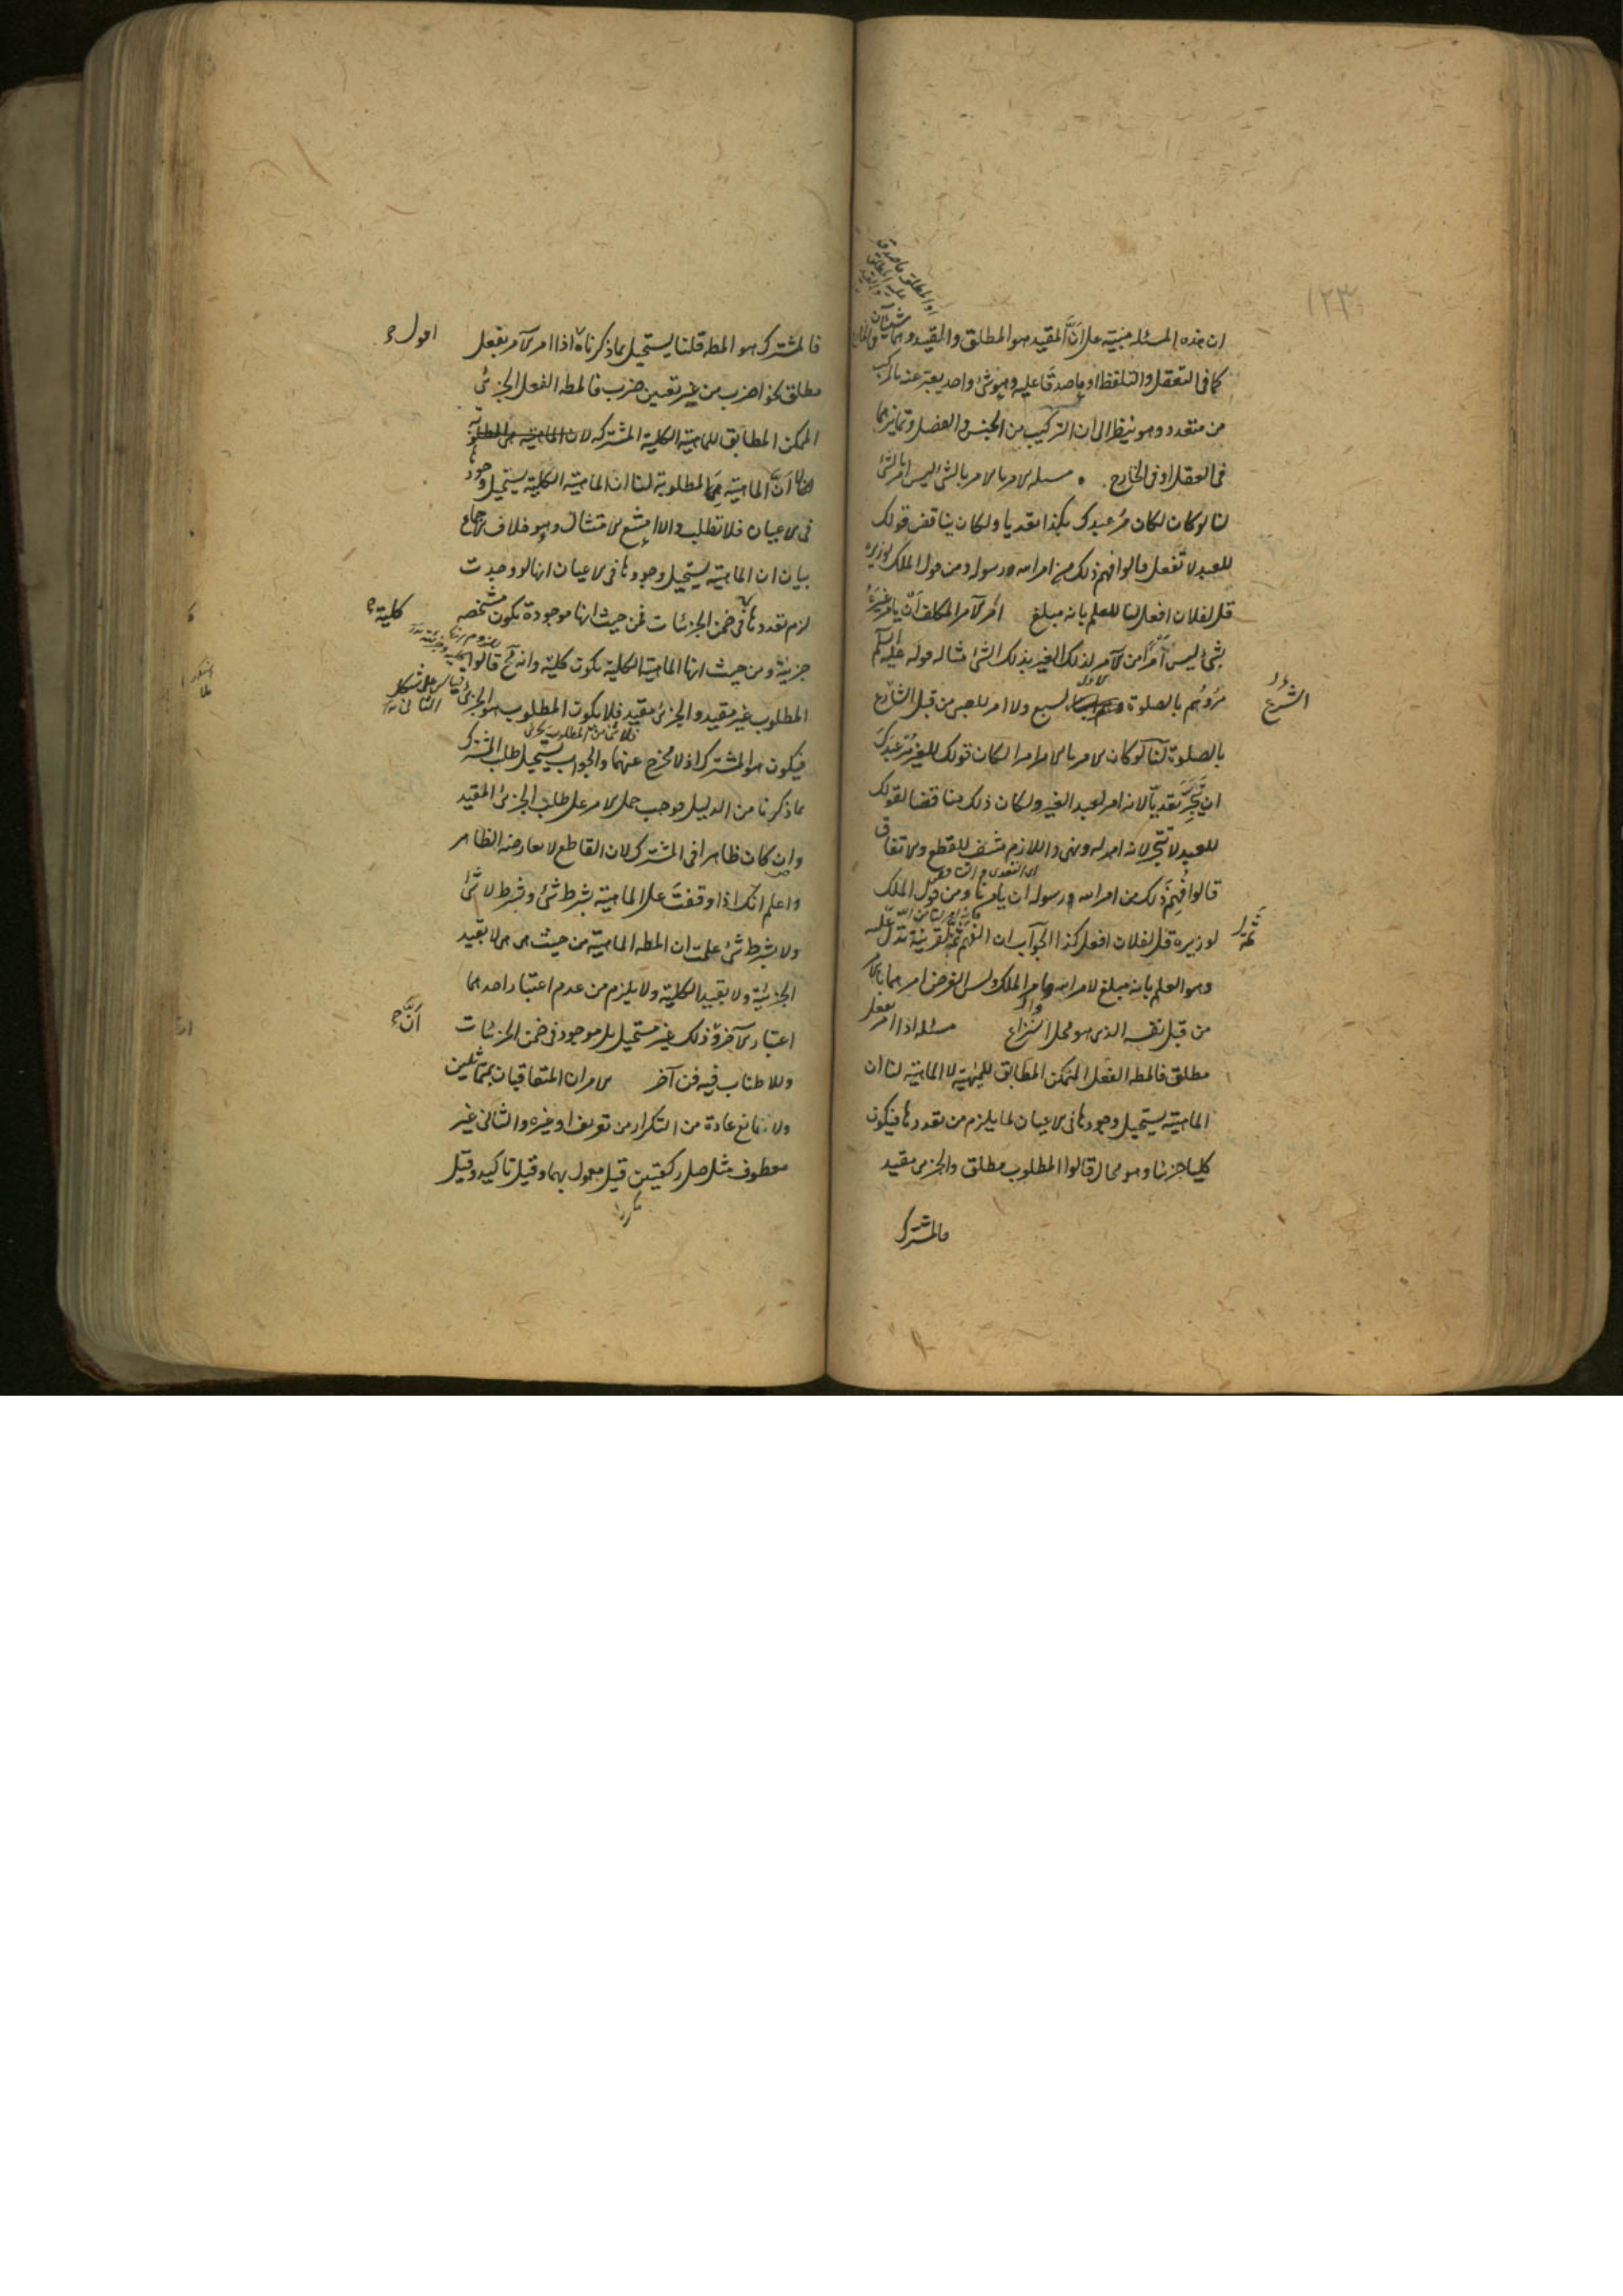 ١٢٣
ان هذه المسئلة مبنية على انّ المقيد هو المطلق والقيد وهما شيئان
كما فى التعقل والتلفظ او ما صدقا عليه وهو شئ واحد يعبر عنه بالمركب
من متعدد وهو ينظر الى ان التركيب من الجنس والفصل وتمايزهما
فى العقل او فى الخارج . مسئلة الامر بالامر بالشئ ليس امرا بالشئ
لنا لو كان لكان مر عبدك بكذا تعديا ولكان يناقض قولك
للعبد لا تفعل قالوا فهم ذلك من امر الله ورسوله ومن قول الملك لوزيره
قل لفلان افعل لنا للعلم بانه مبلغ امر الآمر المكلف ان يأمر غيره
بشئ ليس امرا من الآمر لذلك الغير بذلك الشئ مثاله قوله عليه السلم
مروهم بالصلوة لسبع ولا امر للصبى من قبل الشارع
الشرع
بالصلوة لنا لو كان الامر بالامر امرا لكان قولك للغير مر عبدك
ان يتجر تعديا لانه امر لعبد الغير ولكان ذلك مناقضا لقولك
للعبد لا تتجر لانه امر له ونهى واللازم منتف للقطع والاتفاق
قالوا فهم ذلك من امر الله ورسوله ان يأمرنا ومن قول الملك
لوزيره قل لفلان افعل كذا الجواب ان الفهم ثمة لقرينة تدل عليه
وهو العلم بانه مبلغ لامر الله وامر الملك وليس الغرض امرهما بالامر
من قبل نفسه الذى هو محل النزاع مسئلة اذا امر بفعل
مطلق فالمطه الفعل الممكن المطابق للماهية لا الماهية لنا ان
الماهية يستحيل وجودها فى الاعيان لما يلزم من تعددها فيكون
كليا جزئيا وهو محال قالوا المطلوب مطلق والجزئى مقيد
فالمشترك
فالمشترك هو المطه قلنا يستحيل بما ذكرناه اذا امر الآمر بفعل
اقول
مطلق نحو اضرب من غير تعيين ضرب فالمطه الفعل الجزئى
الممكن المطابق للماهية الكلية المشتركة لا
ان الماهية هى المطلوبة لنا ان الماهية الكلية يستحيل وجودها
فى الاعيان فلا تطلب والا امتنع الامتثال وهو خلاف الاجماع
بيان ان الماهية يستحيل وجودها فى الاعيان انها لو وجدت
لزم تعددها فى ضمن الجزئيات فمن حيث انها موجودة تكون مشخصة
كلية
جزئية ومن حيث انها الماهية الكلية تكون كلية وانه مح قالوا
المطلوب غير مقيد والجزئى مقيد فلا يكون المطلوب هو الجزئى
فيكون هو المشترك اذ لا مخرج عنهما والجواب يستحيل طلب المشترك
بما ذكرنا من الدليل فوجب حمل الامر على طلب الجزئى المقيد
وان كان ظاهرا فى المشترك لان القاطع لا يعارضه الظاهر
واعلم انك اذا وقفت على الماهية بشرط شئ وبشرط لا شئ
ولا بشرط شئ علمت ان المطه الماهية من حيث هى هى لا بقيد
الجزئية ولا بقيد الكلية ولا يلزم من عدم اعتبار احدهما
اعتبار الآخر وذلك غير مستحيل بل موجود فى ضمن الجزئيات
انّ
وللاطناب فيه فن آخر الامران المتعاقبان بمتماثلين
ولا مانع عادة من التكرار من تعريف او غيره والثانى غير
معطوف مثل صل ركعتين قيل معمول بهما وقيل تاكيد وقيل